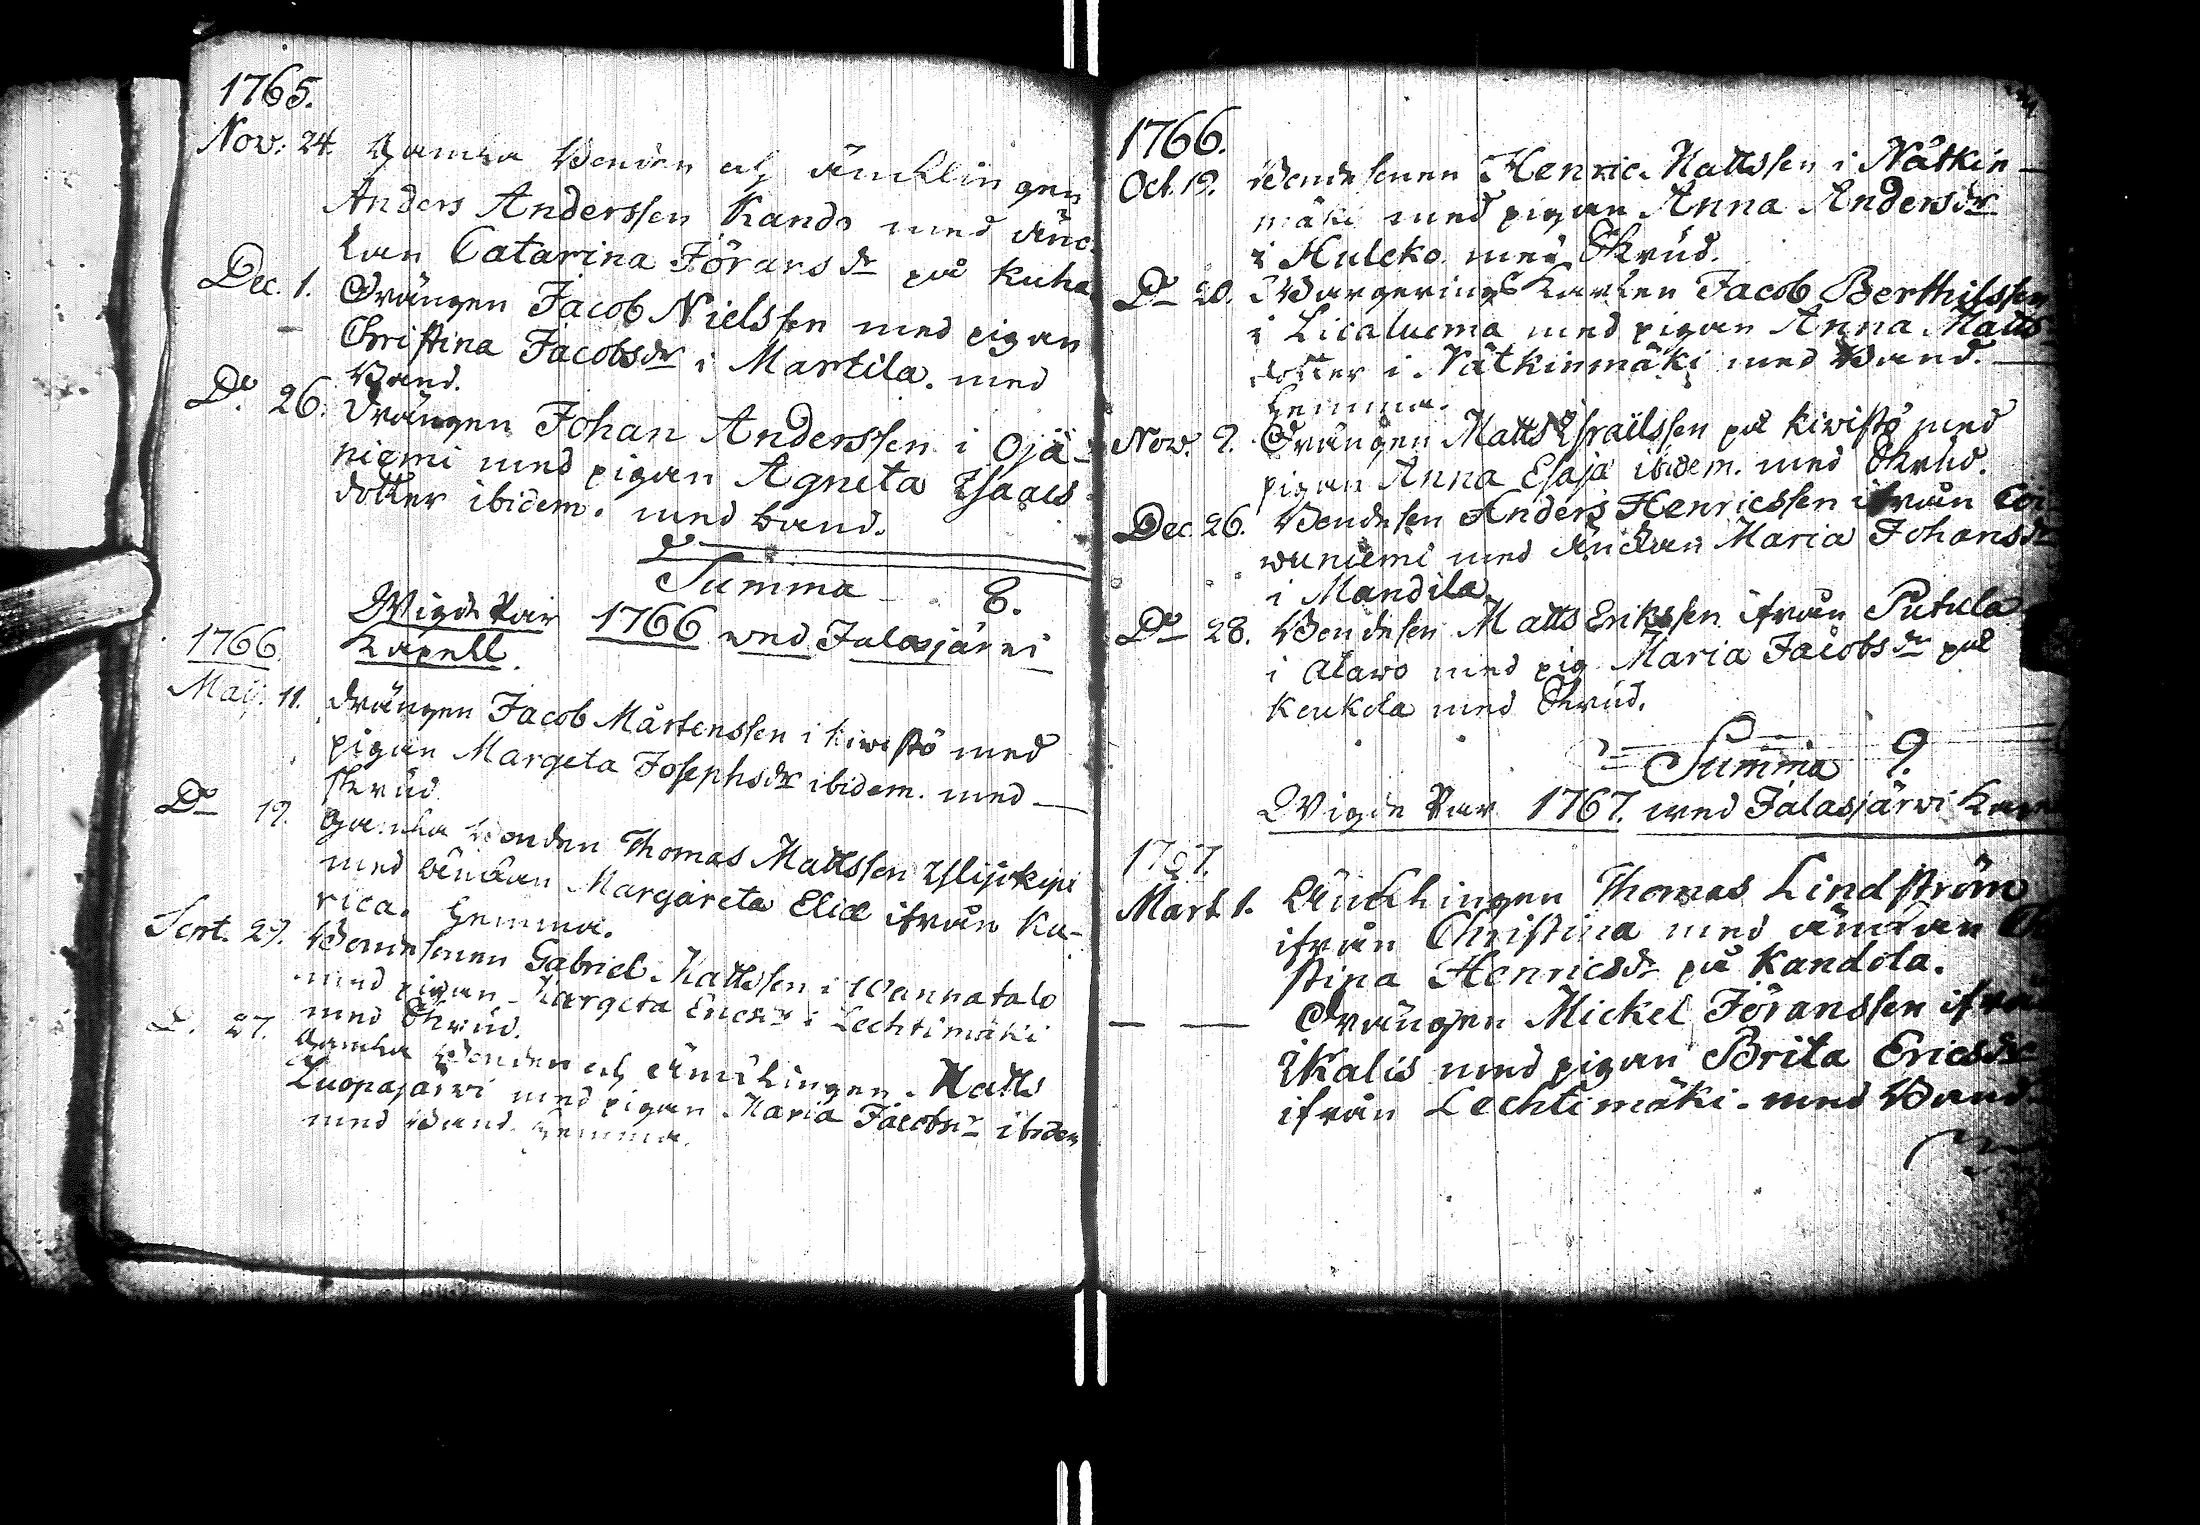 1765.
Nov: 24. Gamla Bonden och Äncklingen
Anders Anderssen Kando med Änc-
kan Catarina Jörans dr på Kuha
Dec. 1. Drängen Jacob Nielssen med pigan
Christina Jacobsdr i Martila. med
Band.
Do 26. Drängen Johan Anderssen i Ojä-
niemi med pigan Agneta Isaacs
dotter ibidem. med band.
Summa 8.
Wigde Par 1766 wed Jalasjärvi
Kapell.
1766
Maij. 11. Drängen Jacob Mårtenssen i Kiwistö med
pigan Margeta Josephsdr ibidem. med
skrud
Do 19. Gamla Bonden Thomas Mattssen
med änckan Margareta Eliæ ifrån Ka-
rica. hemma.
Sept. 29. Bondesonen Gabriel Mattssen i Wannatalo
med pigan Margeta Ericsdr i Lechtimäki
med Skrud.
D. 27. Gamla Bonden och Äncklingen Matts
Luopajärwi med pigan Maria Jacobsdr ibidem
med Band. hemma.
1766.
Oct. 19. Bondesonen Henric Mattssen i Nätkin-
mäki med pigan Anna Andersdr
i Huleko med Skrud.
Do 20. Wargerings Karlen Jacob Berthilssen
i Licaluoma med pigan Anna Matts
dotter i Nätkinmäki med Band.
hemma.
Nov. 2. Drängen Matts Israëlssen på Kiwistö med
pigan Anna Esajæ ibidem. med Skrud.
Dec. 26. Bondesen Anders Henricssen ifrån Coi
wuniemi med Änckan Maria Johansdr
i Mandila.
Do 28. Bondesen Matts Erikssen ifrån Putula
i Alawo med pig Maria Jacobs dr på
Keukola med Skrud.
Summa 9.
Wigde Par 1767. wed Jalasjärwi Kap
1767.
Mart 1. Äncklingen Thomas Lindström
ifrån Christina med änckan
stina Henricsdr på Kandola.
Drängen Mickel Jöranssen ifrån
Ikalis med pigan Brita Ericsdr
ifrån Lechtimäki. med Band